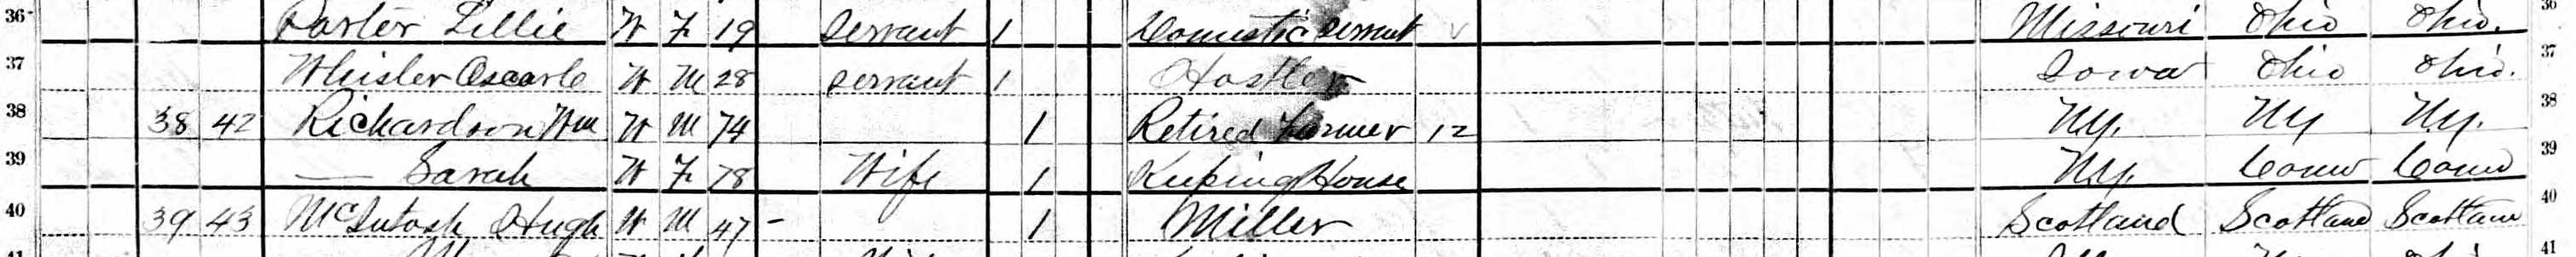 36 Porter Lillie W F 19 Servant 1 Domestic Servant Missouri Ohio Ohio. 36
37 Whisler W M 28 servant 1 Hostler Iowa Ohio Ohio. 37
38 38 42 Richardson Wm W M 74 1 Retired Farmer 12 Ny. Ny Ny. 38
39 — Sarah W F 78 Wife 1 Keeping House Ny. Conn Conn 39
40 39 43 McIntosh Hugh W M 47 - 1 Miller Scotland Scotland Scotland 40
41 41